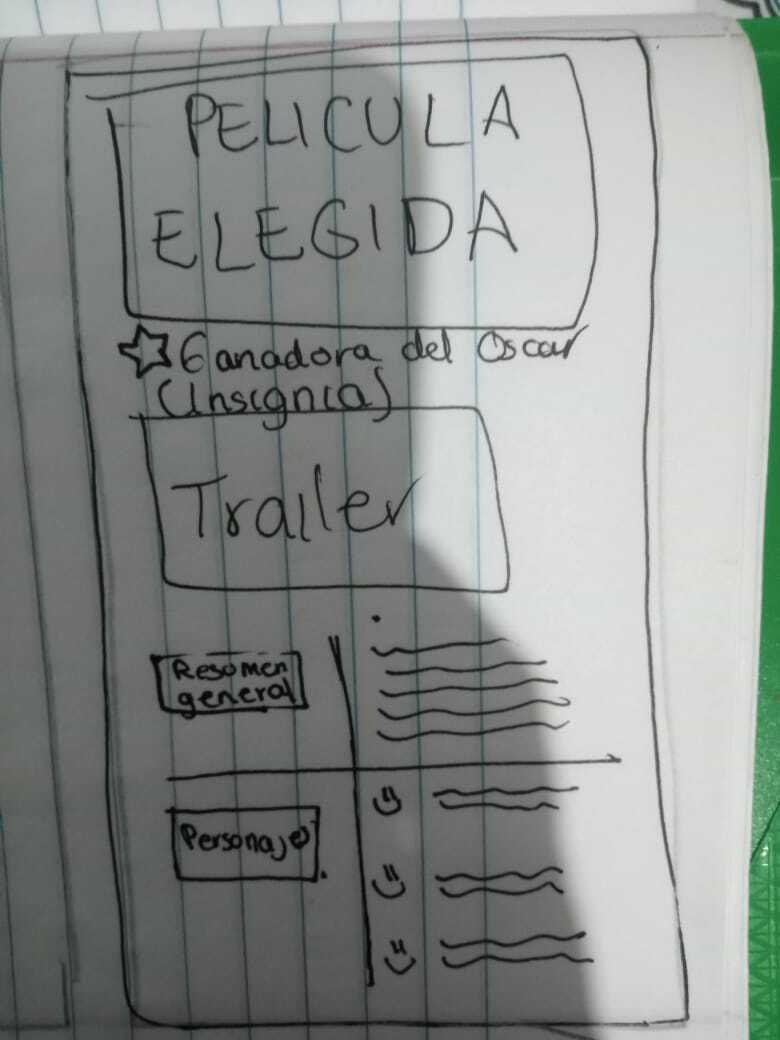 PELICULA
ELEGIDA
Ganadora del Oscar
(Insignia)
Trailer
Resomen
general
Personajes